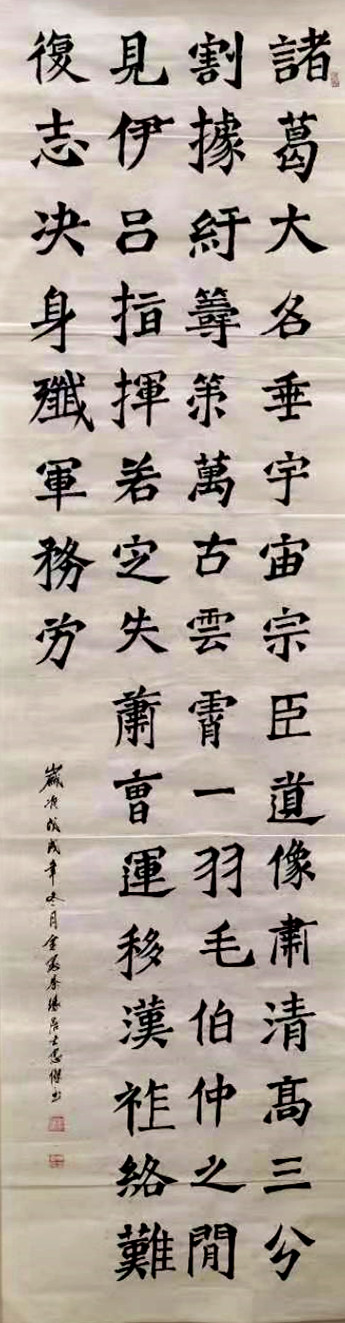 諸葛大名垂宇宙宗臣遺像肅清髙三分
割據紆籌策萬古雲霄一羽毛伯仲之閒
見伊呂指揮若定失蕭曹運移漢祚絡難
復志决身殲軍務労
歲次戊戌年冬月